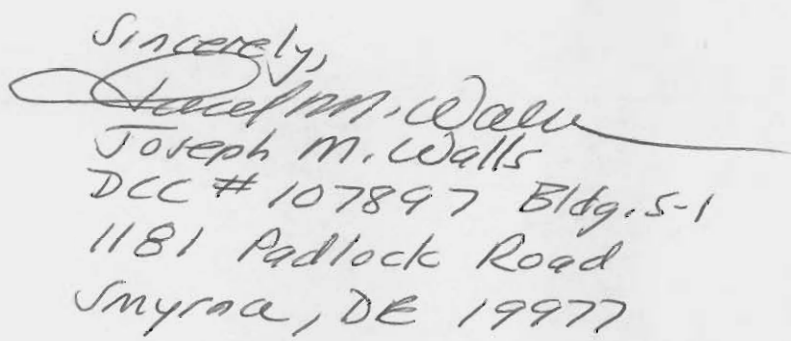 Sincerely,
Joseph M. Walls
Joseph M. Walls
DCC # 107897 Bldg. S-1
1181 Padlock Road
Smyrna, DE 19977